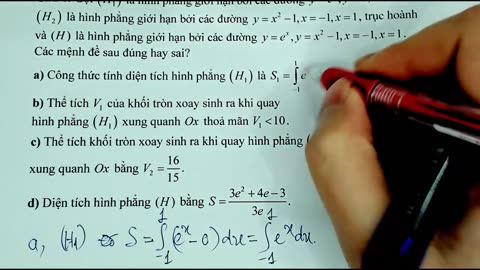 là hình phẳng giới hạn bởi các đường
(H₂) là hình phẳng giới hạn bởi các đường y = x² − 1, x = −1, x = 1, trục hoành
và (H) là hình phẳng giới hạn bởi các đường y = eˣ, y = x² − 1, x = −1, x = 1.
Các mệnh đề sau đúng hay sai?
a) Công thức tính diện tích hình phẳng (H₁) là S₁ = ∫₋₁¹ e
b) Thể tích V₁ của khối tròn xoay sinh ra khi quay
hình phẳng (H₁) xung quanh Ox thoả mãn V₁ < 10.
c) Thể tích khối tròn xoay sinh ra khi quay hình phẳng (
xung quanh Ox bằng V₂ = 16/15.
d) Diện tích hình phẳng (H) bằng S = (3e² + 4e − 3)/3e.
a, (H₁) S = ∫₋₁¹ (eˣ − 0) dx = ∫₋₁¹ eˣ dx.